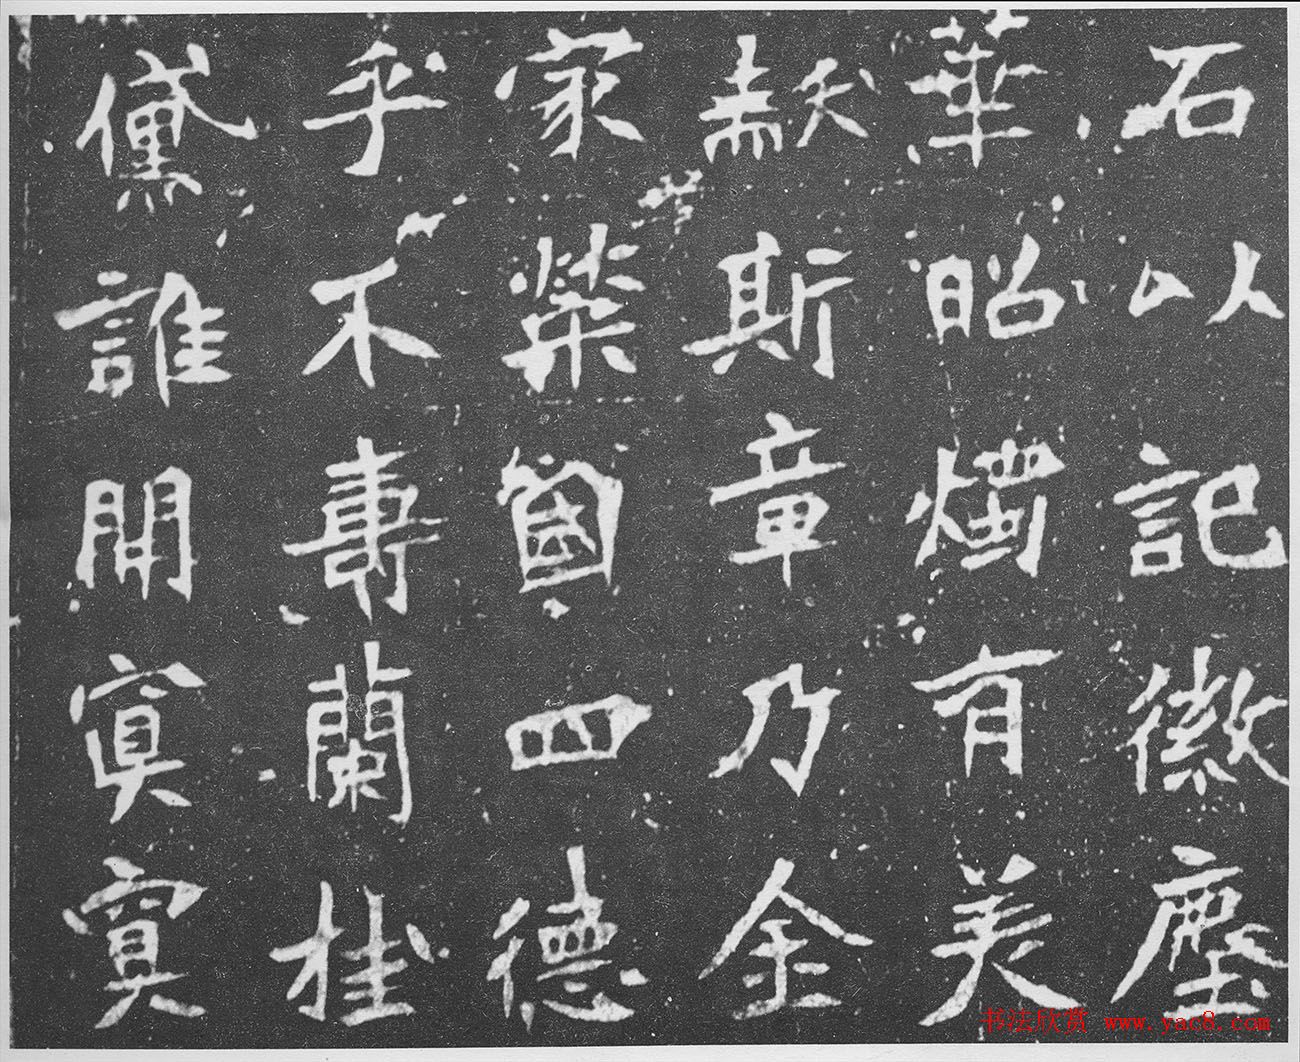 石以記徽塵
華昭燭有美
斯章乃金
家榮國四德
乎不壽蘭桂
黛誰開冥冥
书法欣赏 www.yac8.com